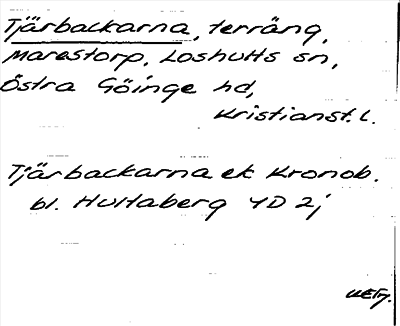 Tjärbackarna, terräng,
Marestorp, Loshults sn,
Östra Göinge hd,
Kristianst. l.
Tjärbackarna ek Kronob.
bl. Hultaberg 4D 2j